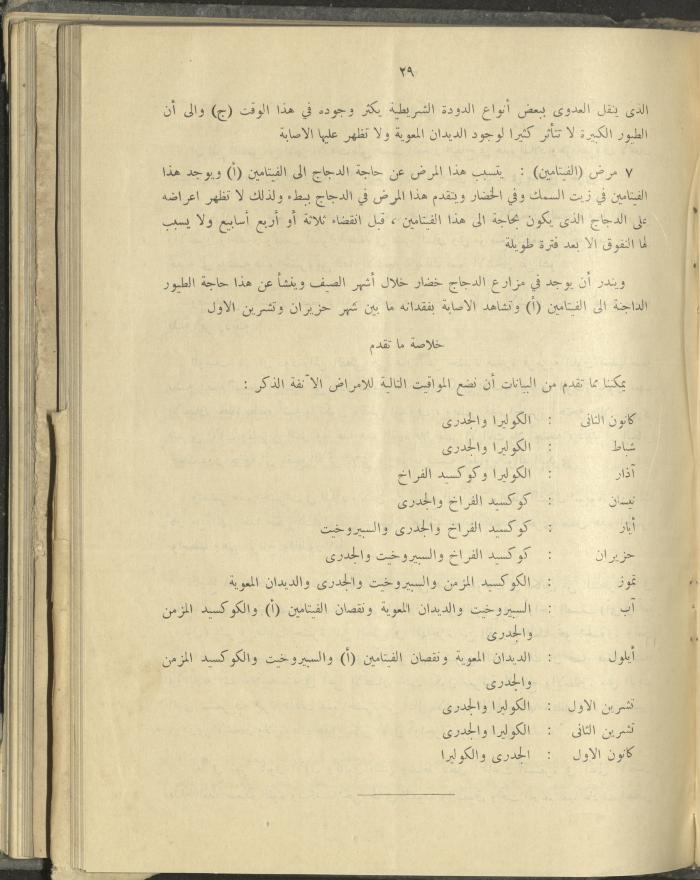 ٢٩
الذى ينقل العدوى ببعض أنواع الدودة الشريطية يكثر وجوده في هذا الوقت (ج) والى أن
الطيور الكبيرة لا تتأثر كثيرا لوجود الديدان المعوية ولا تظهر عليها الاصابة
٧ مرض (الفيتامين) : يتسبب هذا المرض عن حاجة الدجاج الى الفيتامين (أ) ويوجد هذا
الفيتامين في زيت السمك وفي الخضار ويتقدم هذا المرض في الدجاج ببطء ولذلك لا تظهر اعراضه
على الدجاج الذى يكون بحاجة الى هذا الفيتامين ، قبل انقضاء ثلاثة أو أربع أسابيع ولا يسبب
لها النفوق الا بعد فترة طويلة
ويندر أن يوجد في مزارع الدجاج خضار خلال أشهر الصيف وينشأ عن هذا حاجة الطيور
الداجنة الى الفيتامين (أ) وتشاهد الاصابة بفقدانه ما بين شهر حزيران وتشرين الاول
خلاصة ما تقدم
يمكننا مما تقدم من البيانات أن نضع المواقيت التالية للامراض الآنفة الذكر :
كانون الثانى : الكوليرا والجدرى
شباط : الكوليرا والجدرى
آذار : الكوليرا وكوكسيد الفراخ
نيسان : كوكسيد الفراخ والجدرى
أيار : كوكسيد الفراخ والجدرى والسبيروخيت
حزيران : كوكسيد الفراخ والسبيروخيت والجدرى
تموز : الكوكسيد المزمن والسبيروخيت والجدرى والديدان المعوية
آب : السبيروخيت والديدان المعوية ونقصان الفيتامين (أ) والكوكسيد المزمن
والجدرى
أيلول : الديدان المعوية ونقصان الفيتامين (أ) والسبيروخيت والكوكسيد المزمن
والجدرى
تشرين الاول : الكوليرا والجدرى
تشرين الثانى : الكوليرا والجدرى
كانون الاول : الجدرى والكوليرا